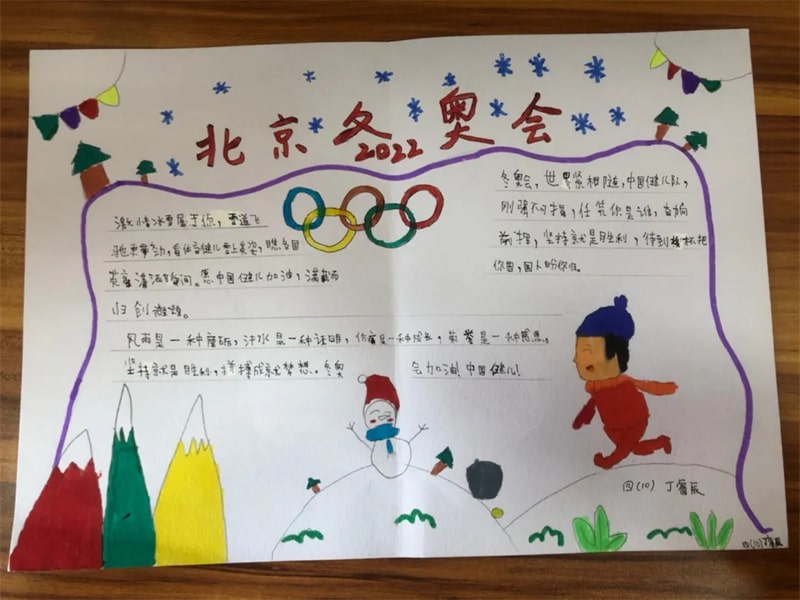 北京冬奥会
2022
激情冰雪属于你，雪道飞
驰更掌劲，看体育健儿雪上英姿，瞧各国
英豪潇洒瞬间。愿中国健儿加油，满载而
归创辉煌。
风雨是一种磨砺，汗水是一种证明，伤痛是一种成长，荣誉是一种感恩。
坚持就是胜利，拼搏成就梦想。冬奥会加油！中国健儿！
冬奥会，世界紧相随，中国健儿队，
刚强不可摧，任凭你是谁，直向
前挥，坚持就是胜利，待到捧杯把
你回，国人盼你归。
四(10) 丁
四(10)